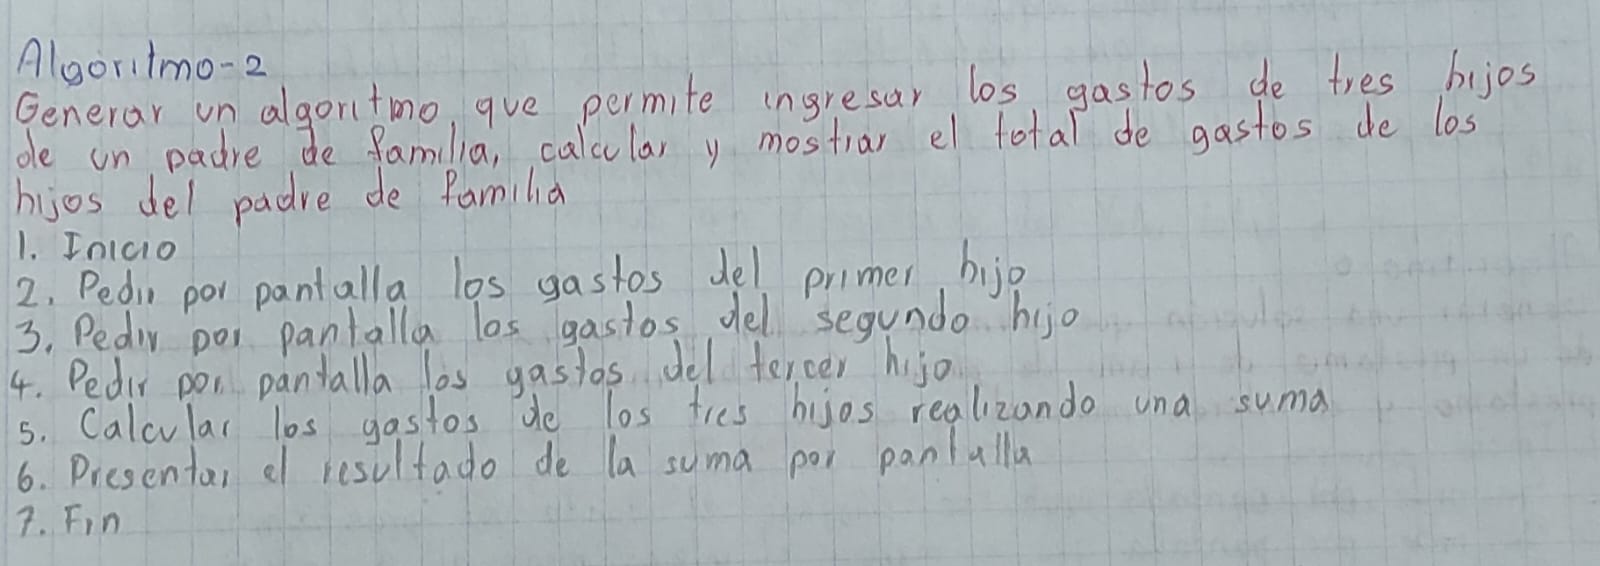 Algoritmo-2
Generar un algoritmo que permite ingresar los gastos de tres hijos
de un padre de familia, calcular y mostrar el total de gastos de los
hijos del padre de familia
1. Inicio
2. Pedir por pantalla los gastos del primer hijo
3. Pedir por pantalla los gastos del segundo hijo
4. Pedir por pantalla los gastos del tercer hijo
5. Calcular los gastos de los tres hijos realizando una suma
6. Presentar el resultado de la suma por pantalla
7. Fin